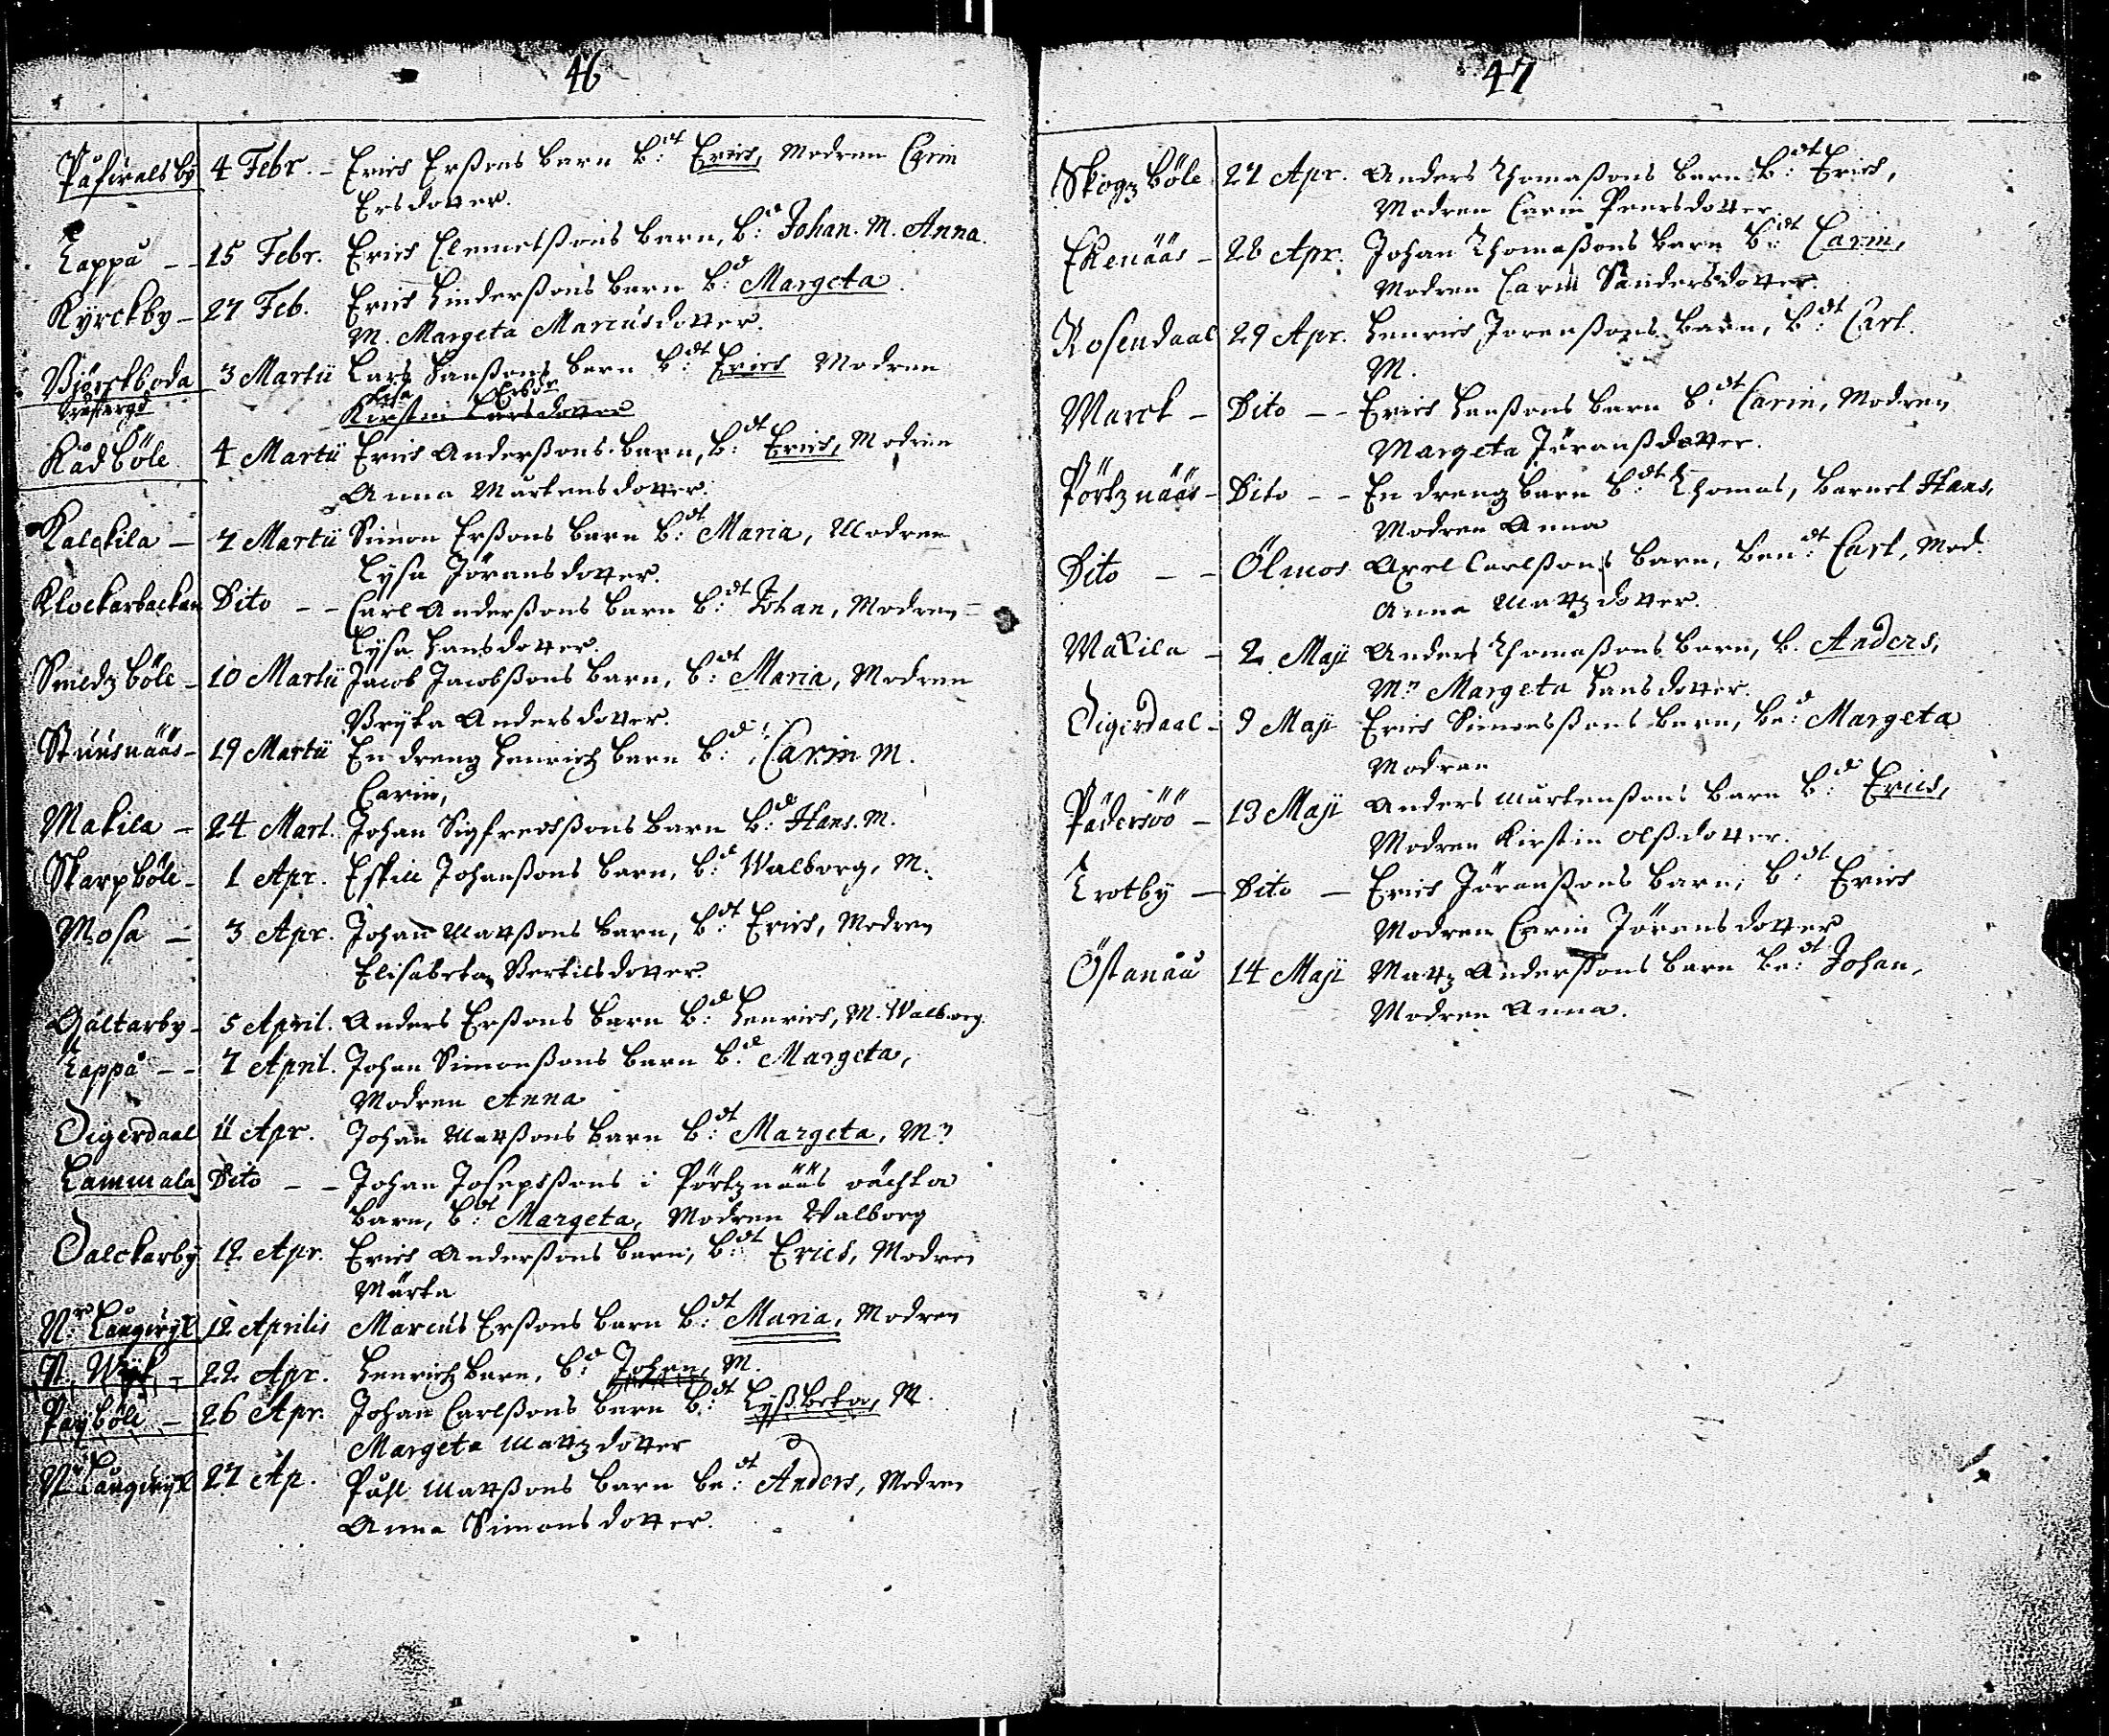 46
Påfwalsby 4 Febr. - Erics Erßons barn b:dt Erics, Modren Carin
Ersdotter.
Lappå - - 15 Febr. Erics Clemetßons barn, b:d Johan. M. Anna.
Kyrckby - 27 Feb. Erics Hinderßons barn b:d Margeta.
M. Margeta Marcusdotter.
Björckboda 3 Martii Lars Hanßons barn b:dt Erics Modren
Lisa Ersdr
Kirstin Larsdotter
Kådböle 4 Martii Erics Anderßons barn, b:dt Erics, Modren
Anna Mårtensdotter.
Kalckila - 7 Martii Simon Erßons barn b:dt Maria, Modren
Lysa Jöransdotter.
Klockarbackan Dito - - Carl Anderßons barn b:dt Johan, Modren
Lysa Hansdotter.
Smedzböle - 10 Martii Jacob Jacobßons barn, b:dt Maria, Modren
Bryta Andersdotter.
Stuusnääs - 19 Martii En dreng Henrichz barn b:d Carin M.
Carin,
Makila - 24 Mart. Johan Sigfredsßons barn b:d Hans. M.
Skarpböle - 1 Apr. Eskill Johanßons barn, b:d Walborg, M.
Mosa - 3 Apr. Johan Matßons barn, b:dt Erics, Modren
Elisabeta Bertilsdotter.
Galtarby - 5 April. Anders Erßons barn b:d Henrics, M. Walborg.
Lappå - - 7 April. Johan Simonßons barn b:d Margeta,
Modren Anna
Digerdaal 11 Apr. Johan Matßons barn b:dt Margeta, M:
Lammala Dito - - Johan Josepsßons i Pörtznääs oächta
barn, b:dt Margeta, Modren Walborg
Dalckarby 12 Apr. Erics Anderßons barn, b:dt Erics, Modren
Märta
N:r Långwyk 12 Aprilis Marcus Erßons barn b:dt Maria, Modren
N. Wyk - 22 Apr. Henrichz barn, b:d Johan, M.
Payböle - 26 Apr. Johan Carlßons barn b:dt Lyßbeta, M.
Margeta Mattzdotter
N:r Långwyk 27 Ap. Påhl Matßons barn be:dt Anders, Modren
Anna Simonsdotter.
47
Skogzböle 27 Apr. Anders Thomaßons barn b:dt Erics,
Modren Carin Peersdotter
Ekenääs - 28 Apr. Johan Thomaßons barn b:dt Carin,
Modren Carin Sandersdotter.
Rosendaal 29 Apr. Henrics Jörenßons barn, b:dt Carl.
M.
Marck - Dito - - Erics Hanßons barn b:dt Carin, Modren
Margeta Jöranßdotter.
Pörtznääs - Dito - - En dreng barn b:dt Thomas, barnet Hans,
Modren Anna
Dito - - Ölmos Axel Carlßons barn, ben:dt Carl, Mod.
Anna Mattzdotter.
Makila - 2 Maji Anders Thomaßons barn, b. Anders,
M:n Margeta Hansdotter.
Digerdaal - 9 Maji Erics Simonsßons barn, be:d Margeta
Modren
Pädersöö - 13 Maji Anders Mårtenßons barn b:d Erics,
Modren Kirstin Olßdotter.
Trotby - Dito - Erics Jöranßons barn, b:dt Erics
Modren Carin Jöransdotter
Östanåå 14 Maji Mattz Anderßons barn be:dt Johan,
Modren Anna.